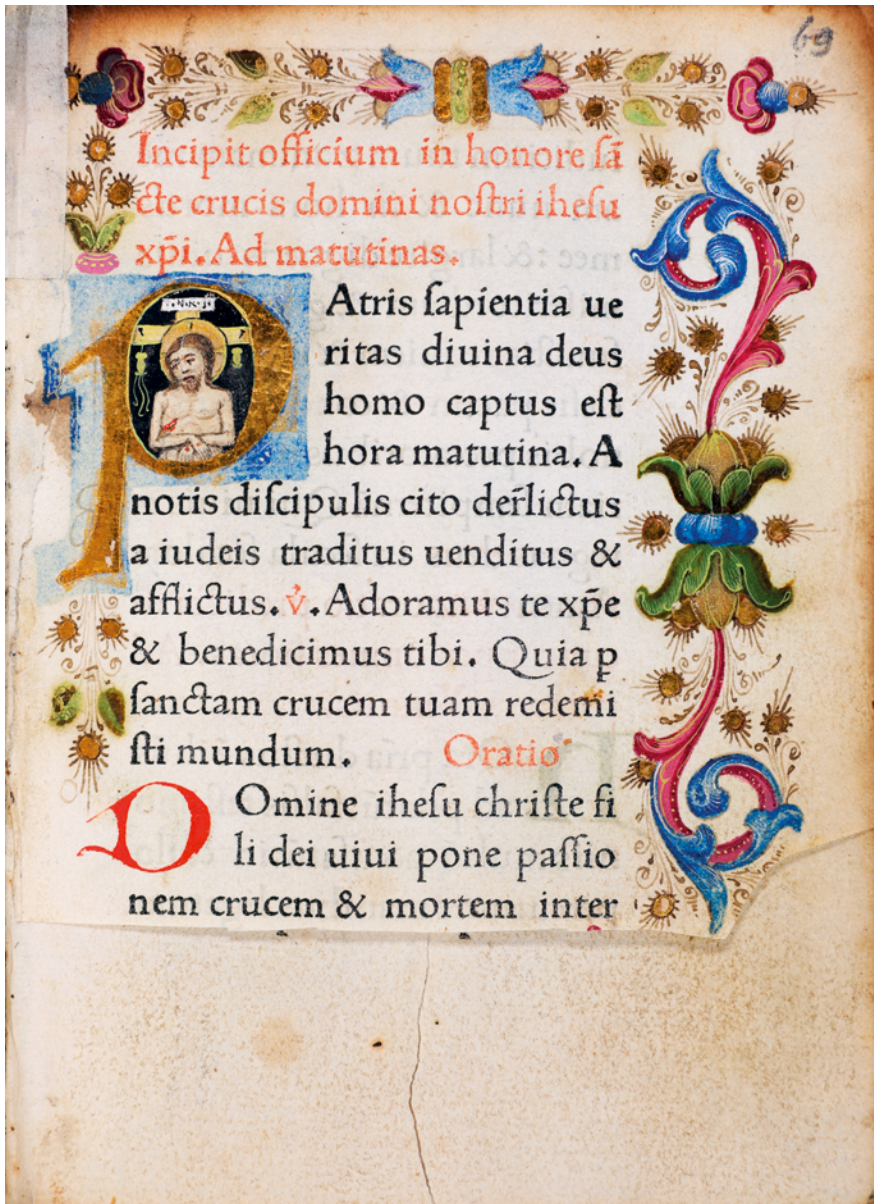 69
Incipit officium in honore sā
cte crucis domini nostri ihesu
xp̄i. Ad matutinas.
PAtris sapientia ue
ritas diuina deus
homo captus est
hora matutina. A
notis discipulis cito der̄lictus
a iudeis traditus uenditus &
afflictus. v̇. Adoramus te xp̄e
& benedicimus tibi. Quia p
sanctam crucem tuam redemi
sti mundum. Oratio
DOmine ihesu christe fi
li dei uiui pone passio
nem crucem & mortem inter